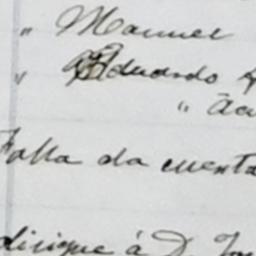 " Manuel
" Eduardo
"
Falta da cuenta
dirigue á D.